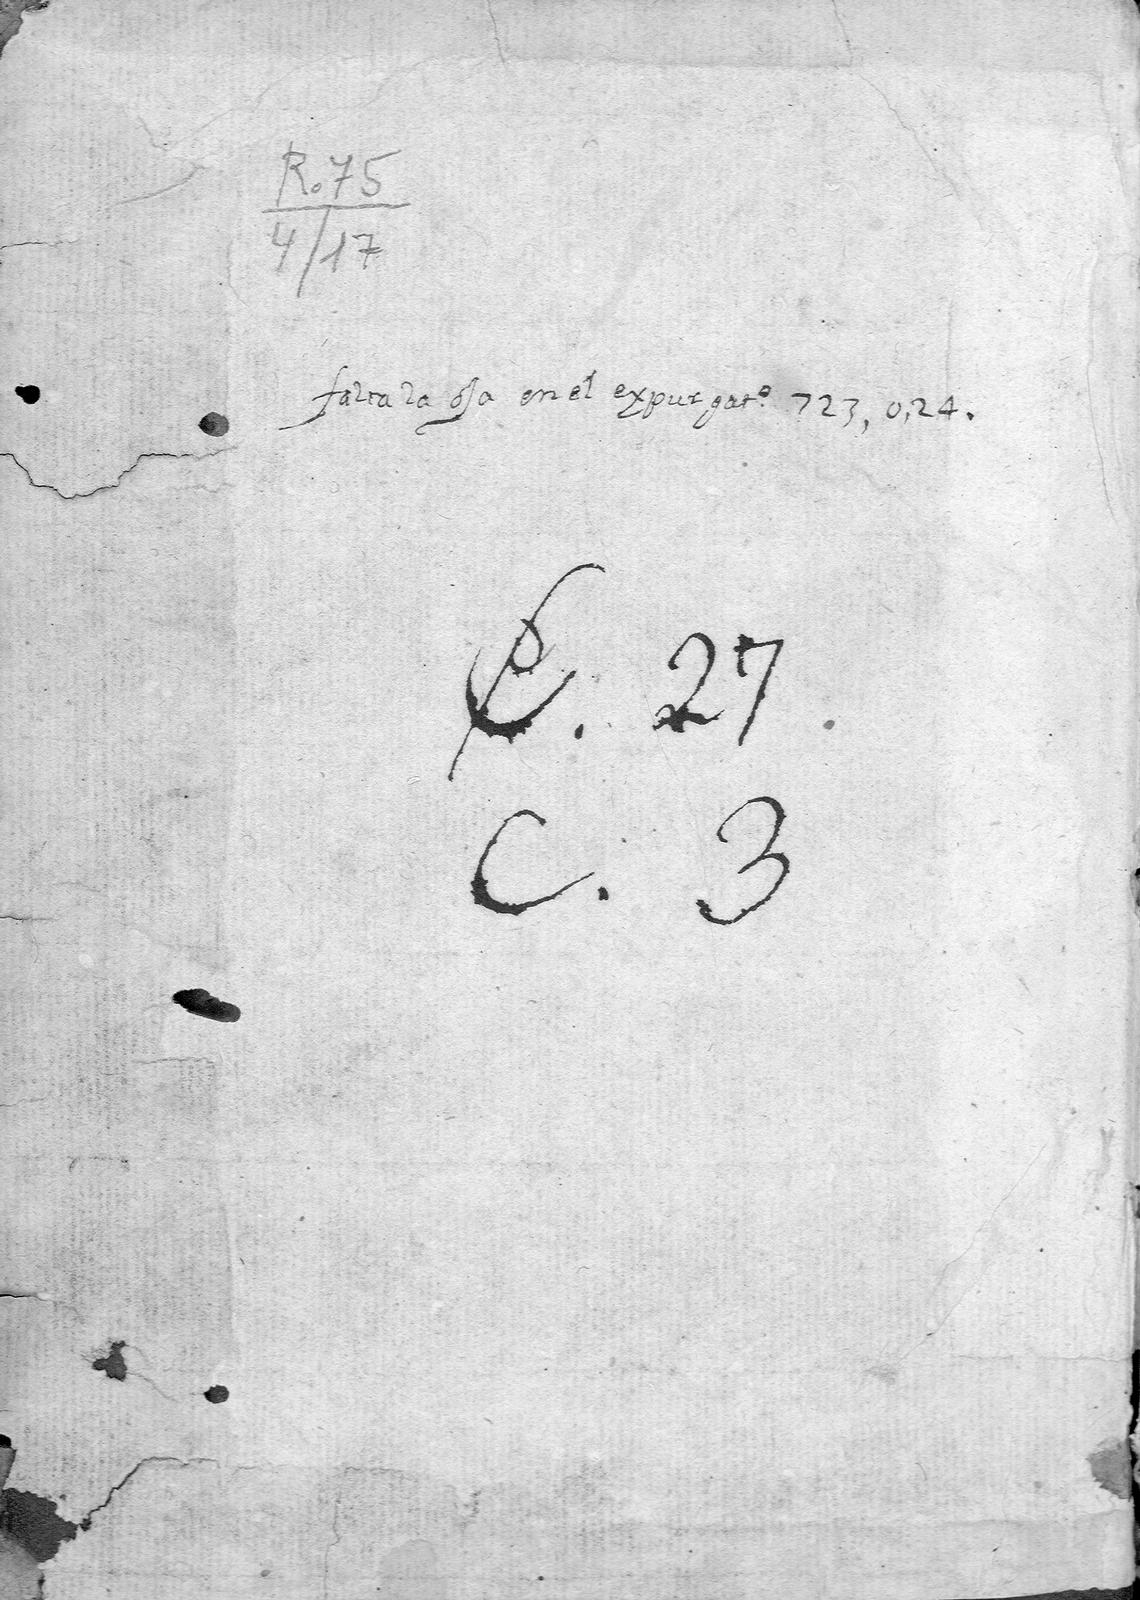 R. 75
4/17
falta la oja en el expurgatº 723, 0,24.
27.
C. 3